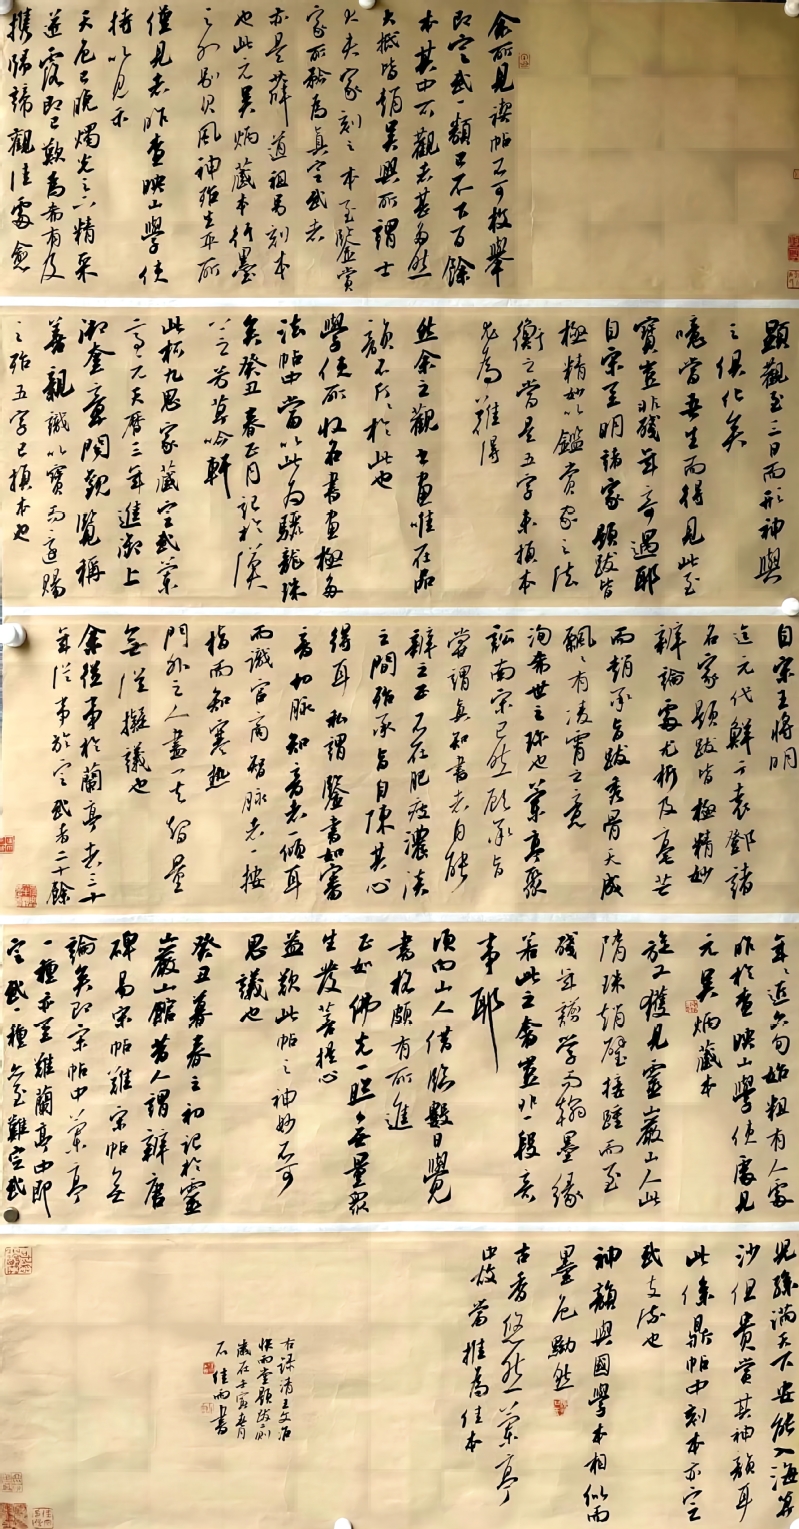 余所見禊帖不可枚舉
即定武一類已不下百餘
本其中不觀者甚多然
大抵皆趙吳興所謂士
大夫家刻之本至鑒賞
家所矜為真定武者
亦是薛道祖易刻本
也此元吳炳藏本紙墨
之外別具風神殆生平所
僅見者昨查映山學使
持以見示
天色已晚燭光之下精采
逬露即已歎為希有及
攜歸諦觀佳處愈
顯觀至三日而形神與
之俱化矣
噫當吾生而得見此至
寶豈非殘年奇遇耶
自宋至明諸家題跋皆
極精妙以鑑賞家之法
衡之當是五字未損本
尤為難得
然余之觀書畫惟在品
韻不斤斤於此也
學使所收名書畫極多
法帖中當以此為驪龍珠
矣癸丑春正月記於漢
上之芳草吟軒
此柯九思家藏定武蘭
亭元天曆三年進御上
御奎章閣觀覽稱
善親識以寶而還賜
之殆五字已損本也
自宋王將明
迄元代鮮于袁鄧諸
名家題跋皆極精妙
辨論處尤析及毫芒
而趙承旨跋秀骨天成
飄飄有凌霄之意
洵希世之珍也蘭亭聚
訟南宋已然顧承旨
嘗謂真知書者自能
辨之正不在肥瘦濃淡
之間殆承旨自陳其心
得耳私謂鑒書如審
音切脉知音者一傾耳
而識宮商智脉者一按
指而知寒熱
門外之人盡一夫智量
無從擬議也
余從事於蘭亭者三十
年從事於定武者二十餘
年年近六旬始粗有人處
昨於查映山學使處見
元吳炳藏本
旋又獲見靈巖山人此
隋珠趙璧接踵而至
殘年篤學而翰墨緣
若此之奢豈非一段奇
事耶
須向山人借臨數日覺
書格頗有所進
正如佛光一照無量眾
生發菩提心
益歎此帖之神妙不可
思議也
癸丑暮春之初記於靈
巖山館昔人謂辨唐
碑易宋帖難宋帖無
論矣即宋帖中蘭亭
一種亦至難蘭亭中即
定武一種至難定武
兒孫滿天下安能入海算
沙但貴賞其神韻耳
此係鼎帖中刻本亦定
武支流也
神韻與國學本相似而
墨色黝然
古香悠然蘭亭
中故當推為佳本
右錄清王文治
快雨堂題跋一則
歲在壬寅春月
石佳雨書